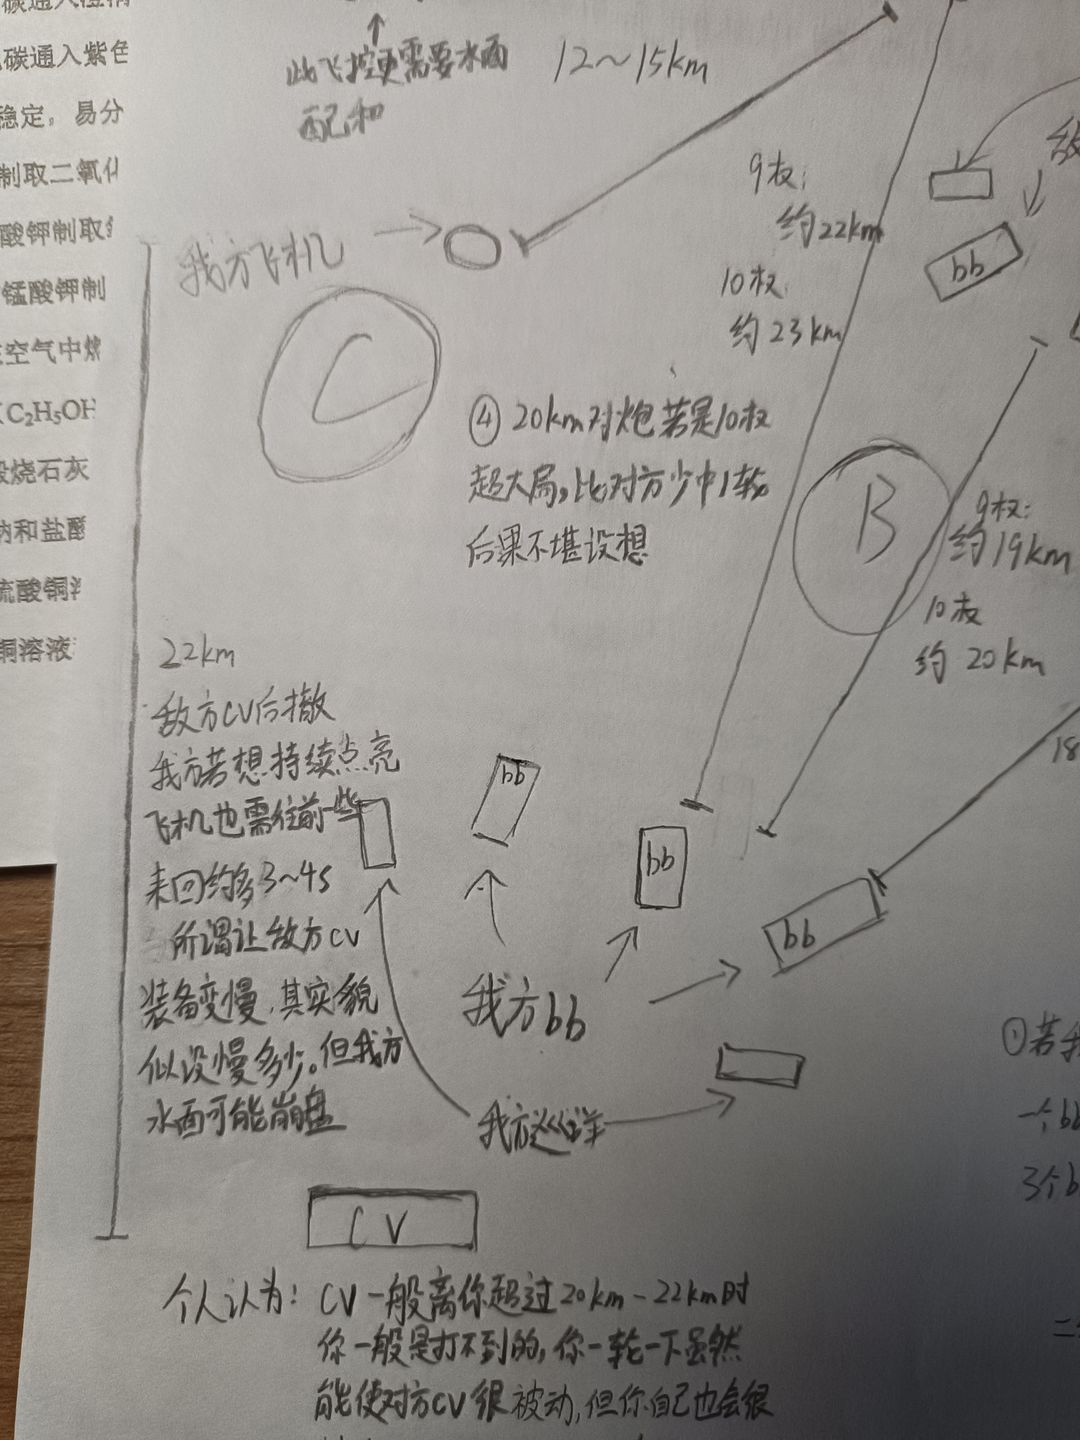 碳通入紫色
稳定，易分
制取二氧化
酸钾制取
锰酸钾制
空气中燃
C₂H₅OH
烧石灰
和盐酸
硫酸铜
铜溶液
此飞控更需要水面
配和
12～15km
敌
9枚：
约22km
10枚：
约23km
bb
我方飞机
C
④ 20km对炮若是10枚
超大局，比对方少中1轮
后果不堪设想
B
9枚：
约19km
10枚
约 20km
22km
敌方CV后撤
我方若想持续点亮
飞机也需往前一些
来回约多3～4s
所谓让敌方CV
装备变慢，其实貌
似没慢多少。但我方
水面可能崩盘
bb
bb
bb
18
我方bb
我方巡洋
①若我
一个bb
3个b
CV
个人认为：CV一般离你超过20km-22km时
你一般是打不到的，你一轮一下虽然
能使对方CV很被动，但你自己也会很